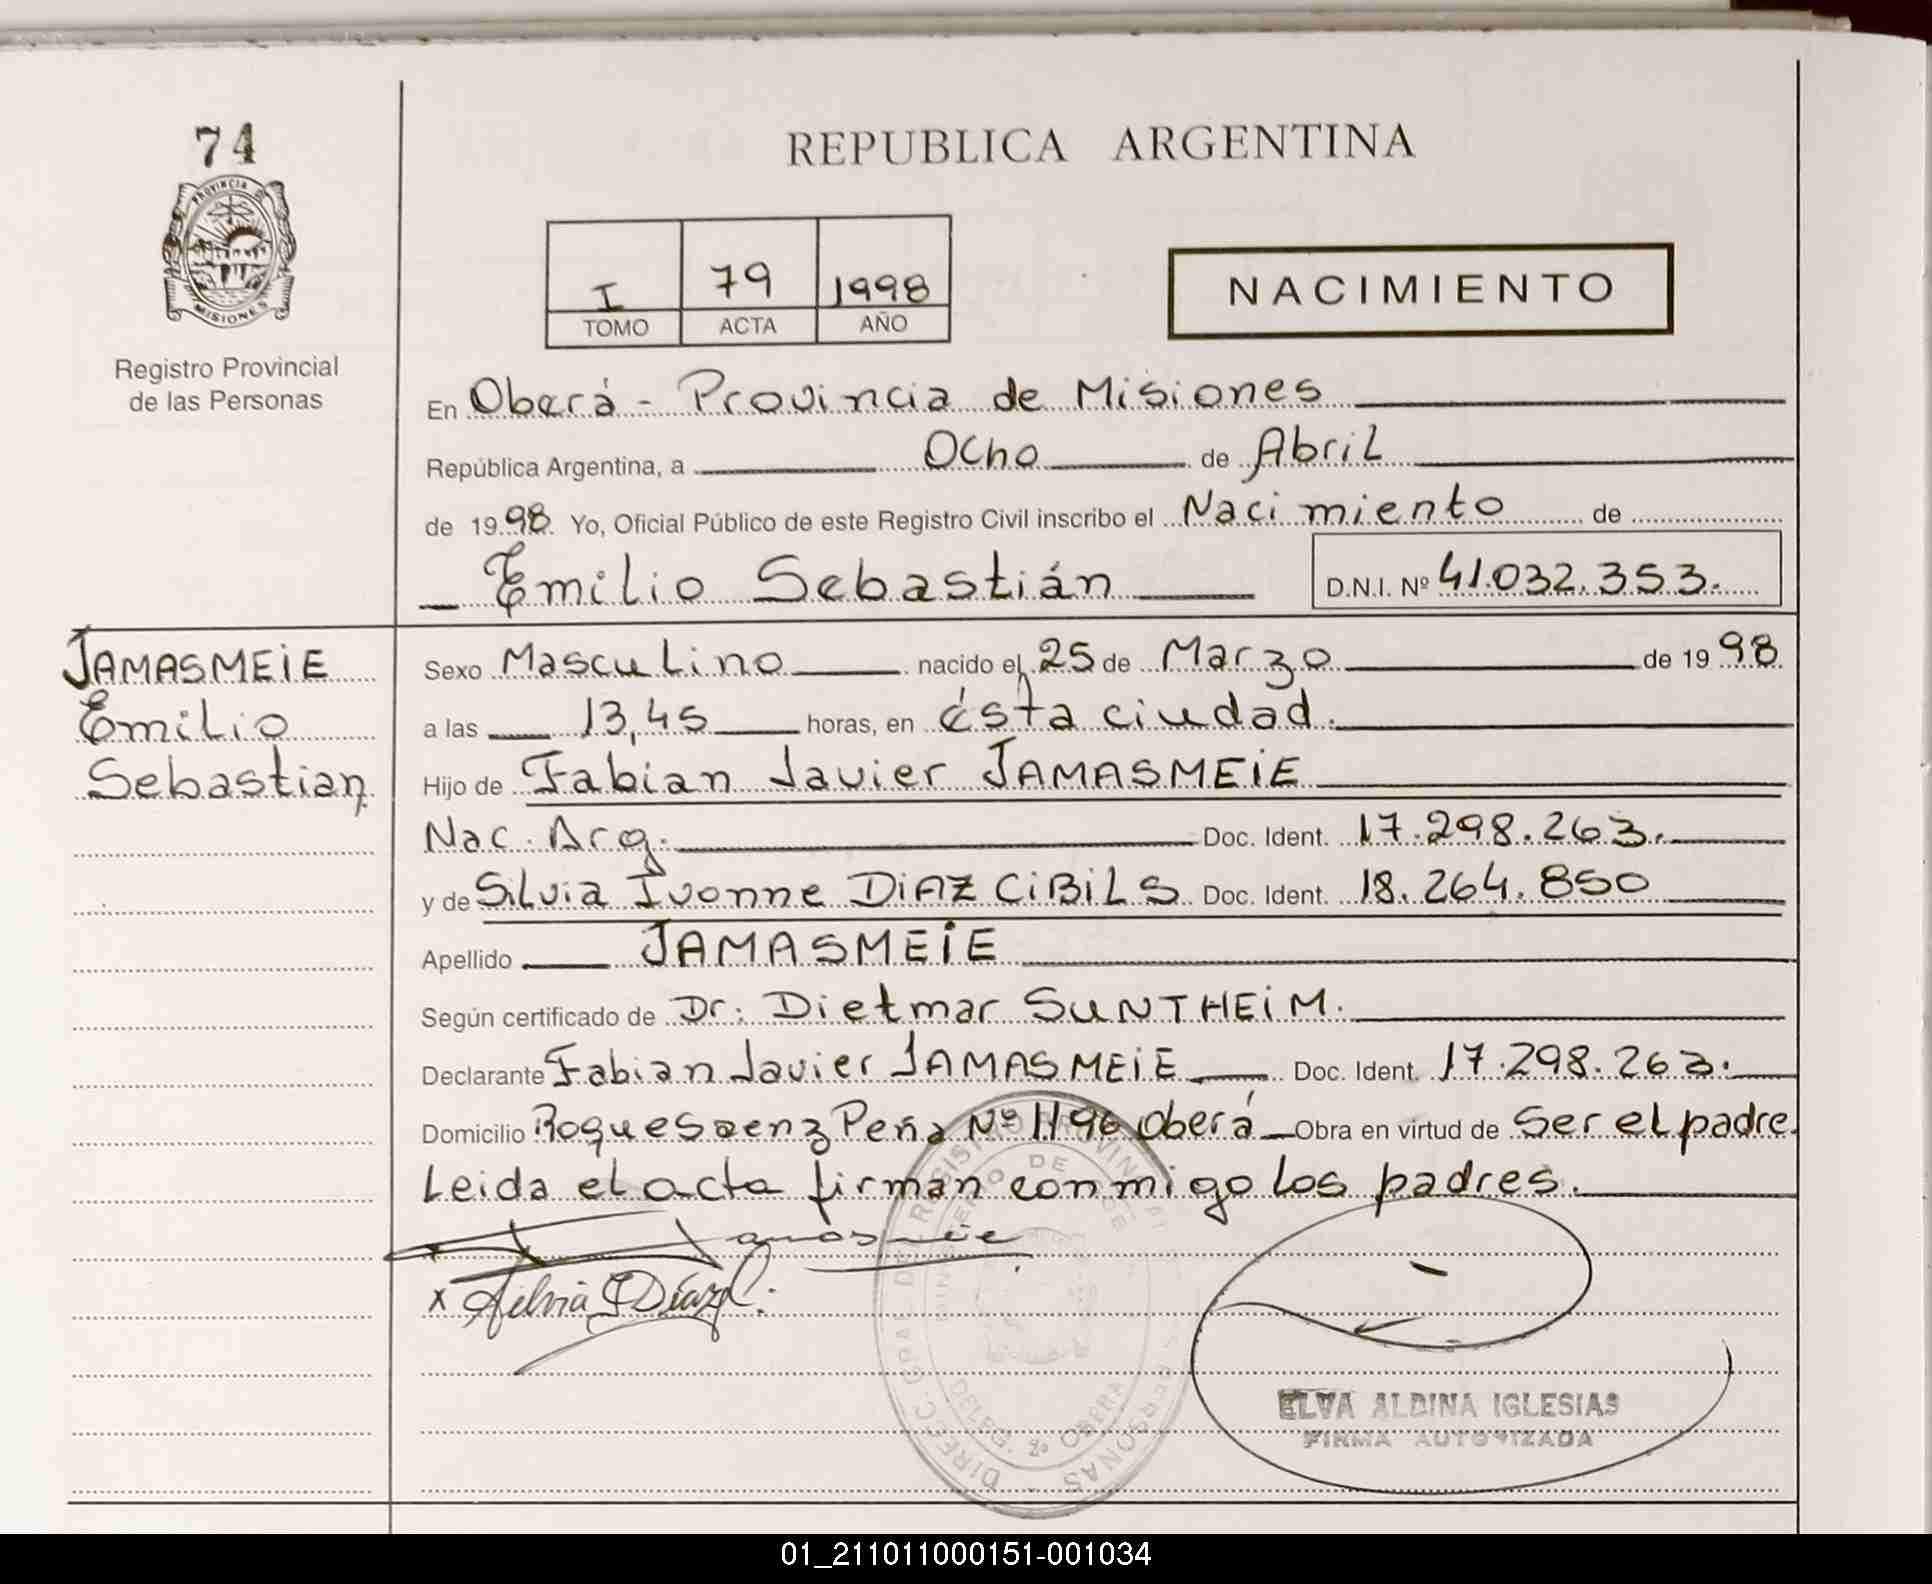 74
PROVINCIA DE
MISIONES
Registro Provincial
de las Personas
REPUBLICA ARGENTINA
I 79 1998
TOMO ACTA AÑO
NACIMIENTO
En Oberá - Provincia de Misiones
República Argentina, a Ocho de Abril
de 1998. Yo, Oficial Público de este Registro Civil inscribo el Nacimiento de
Emilio Sebastián D.N.I. Nº 41.032.353.
JAMASMEiE
Emilio
Sebastian
Sexo Masculino nacido el 25 de Marzo de 1998
a las 13,45 horas, en ésta ciudad.
Hijo de Fabian Javier JAMASMEiE
Nac. Arg. Doc. Ident. 17.298.263.
y de Silvia Ivonne DiAZ CiBiLS Doc. Ident. 18.264.850
Apellido JAMASMEiE
Según certificado de Dr: Dietmar SUNTHEiM.
Declarante Fabian Javier JAMASMEiE Doc. Ident. 17.298.263.
Domicilio Roque Saenz Peña Nº 1196 Oberá Obra en virtud de Ser el padre.
Leida el acta firman conmigo los padres.
x Silvia I Díaz C.
DIREC. GRAL. DEL REGISTRO PROVINCIAL DE LAS PERSONAS
MINISTERIO DE
DELEG. 2º OBERA
ELVA ALDINA IGLESIAS
FIRMA AUTORIZADA
01_211011000151-001034